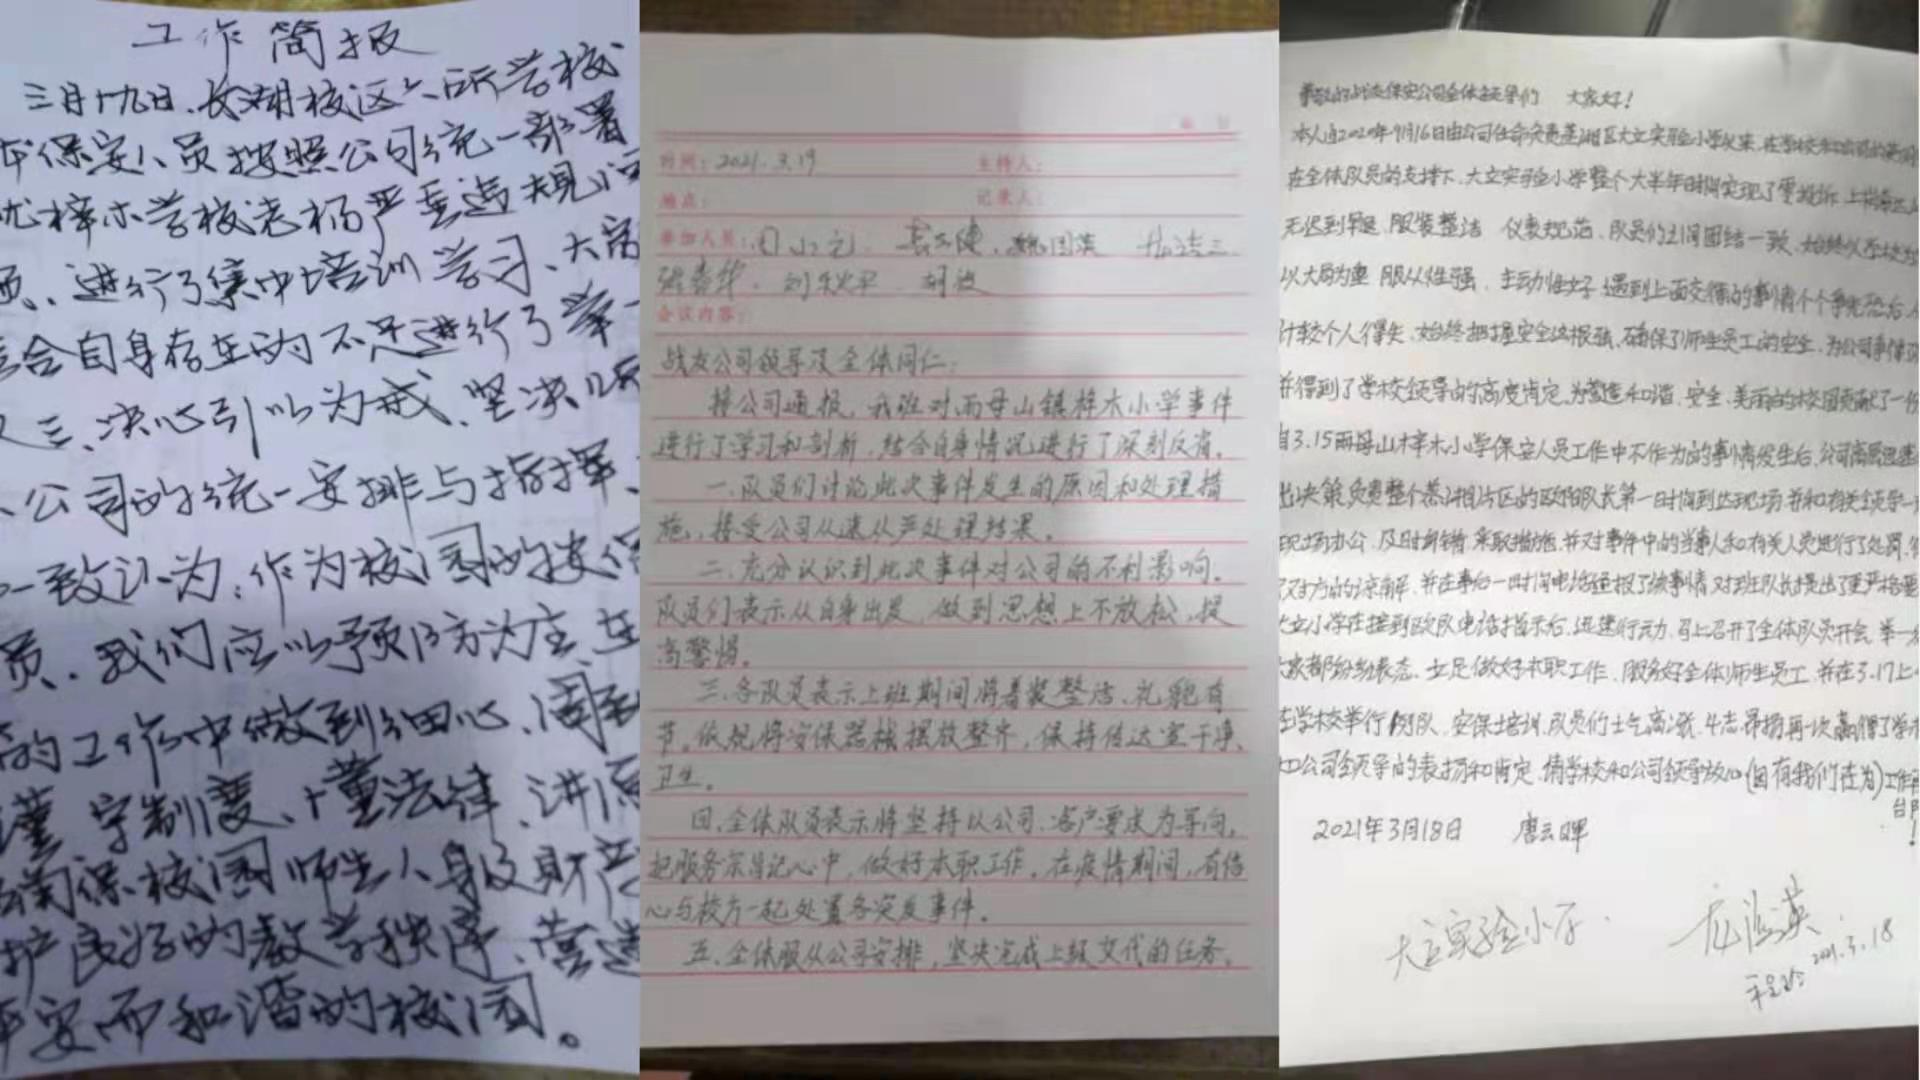 工作简报
三月十九日、长湖校区六所学校
保安人员按照公司统一部署
梓木学校老杨严重违规问
进行了集中培训学习、大家
合自身存在的不足进行了举一
三、决心引以为戒、坚决服
公司的统一安排与指挥、
一致认为：作为校园的安保
员、我们应以预防为主、在
的工作中做到细心、周到
谨、守制度、懂法律、讲原
确保校园师生人身及财产
护良好的教学秩序、营造
平安而和谐的校园。
时间：2021.3.19 主持人：
地点： 记录人：
参加人员：
会议内容：
战友公司领导及全体同仁：
接公司通报，我班对雨母山镇梓木小学事件
进行了学习和剖析，结合自身情况进行了深刻反省。
一、队员们讨论此次事件发生的原因和处理措
施，接受公司从速从严处理结果。
二、充分认识到此次事件对公司的不利影响。
队员们表示从自身出发，做到思想上不放松，提
高警惕。
三、各队员表示上班期间将着装整洁、礼貌有
节。依规将安保器械摆放整齐，保持传达室干净、
卫生。
四、全体队员表示将坚持以公司、客户要求为导向，
把服务宗旨记心中，做好本职工作。在疫情期间，有信
心与校方一起处置各突发事件。
五、全体服从公司安排，坚决完成上级交代的任务。
战友保安公司全体领导们 大家好！
本人自2020年9月16日由公司任命负责蒸湘区大立实验小学以来，在学校和公司的
在全体队员的支持下、大立实验小学整个大半年时间实现了零投诉 上岗
无迟到早退、服装整洁 仪表规范、队员们之间团结一致、始终以学校
以大局为重 服从性强、主动性好 遇到上面交待的事情个个争先恐后、
计较个人得失、始终把握安全这根弦、确保了师生员工的安全、为公司
并得到了学校领导的高度肯定、为营造和谐、安全、美丽的校园贡献了一份
自3.15雨母山梓木小学保安人员工作中不作为的事情发生后、公司高层迅速
出决策 负责整个蒸湘片区的欧阳队长第一时间到达现场 并和有关领导一
现场办公、及时 采取措施 并对事件中的当事人和有关人员进行了处罚、
对方的谅解、并在事后一时间电话通报了该事情 对班队长提出了更严格要
大立小学在接到欧队电话指示后、迅速行动、马上召开了全体队员开会、举一
大家都纷纷表态、立足做好本职工作、服务好全体师生员工、并在3.17上
在学校举行 队、安保培训、队员们士气高涨、斗志昂扬 再次赢得了学
和公司领导的表扬和肯定、请学校和公司领导放心（自有我们在为）工作
2021年3月18日 唐云晖
大立实验小学
2021.3.18